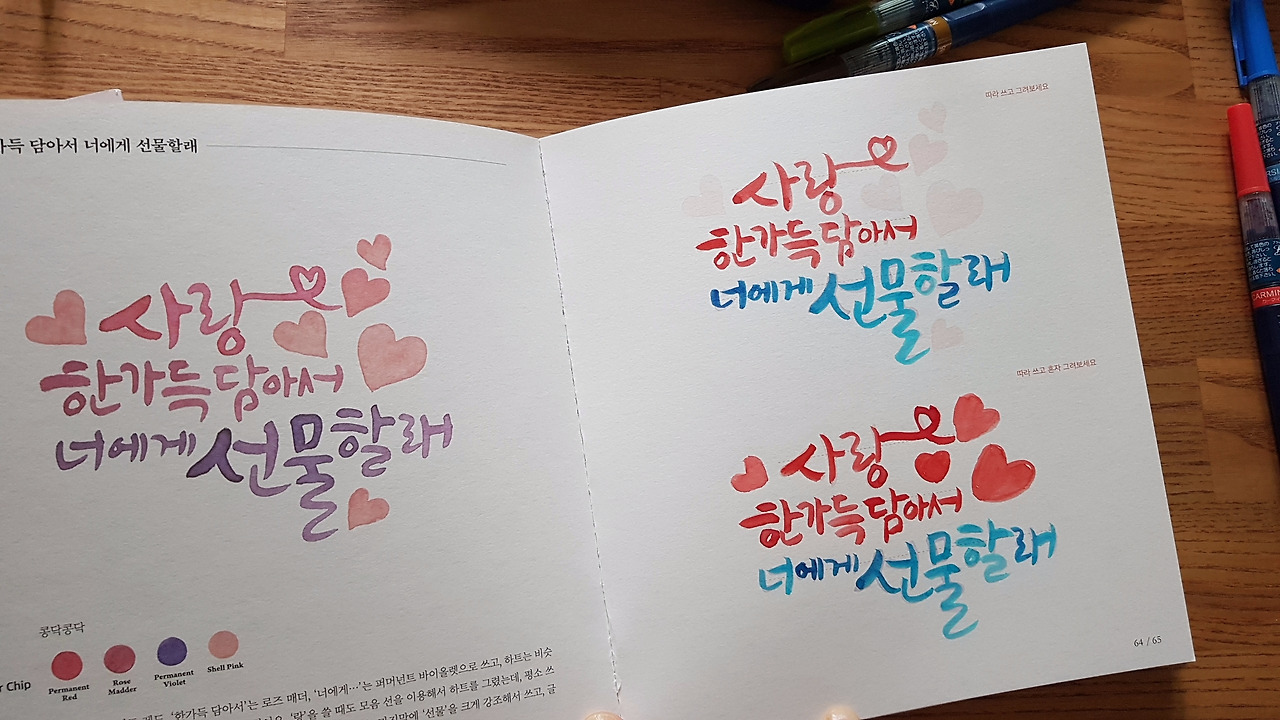 가득 담아서 너에게 선물할래
사랑
한가득 담아서
너에게 선물할래
콩닥콩닥
r Chip
Permanent Red
Rose Madder
Permanent Violet
Shell Pink
레드, '한가득 담아서'는 로즈 매더, '너에게…'는 퍼머넌트 바이올렛으로 쓰고, 하트는 비슷
'랑'을 쓸 때도 모음 선을 이용해서 하트를 그렸는데, 평소 쓰
'선물'을 크게 강조해서 쓰고, 글
따라 쓰고 그려보세요
사랑
한가득 담아서
너에게 선물할래
따라 쓰고 혼자 그려보세요
사랑
한가득 담아서
너에게 선물할래
64 / 65
CARMIN